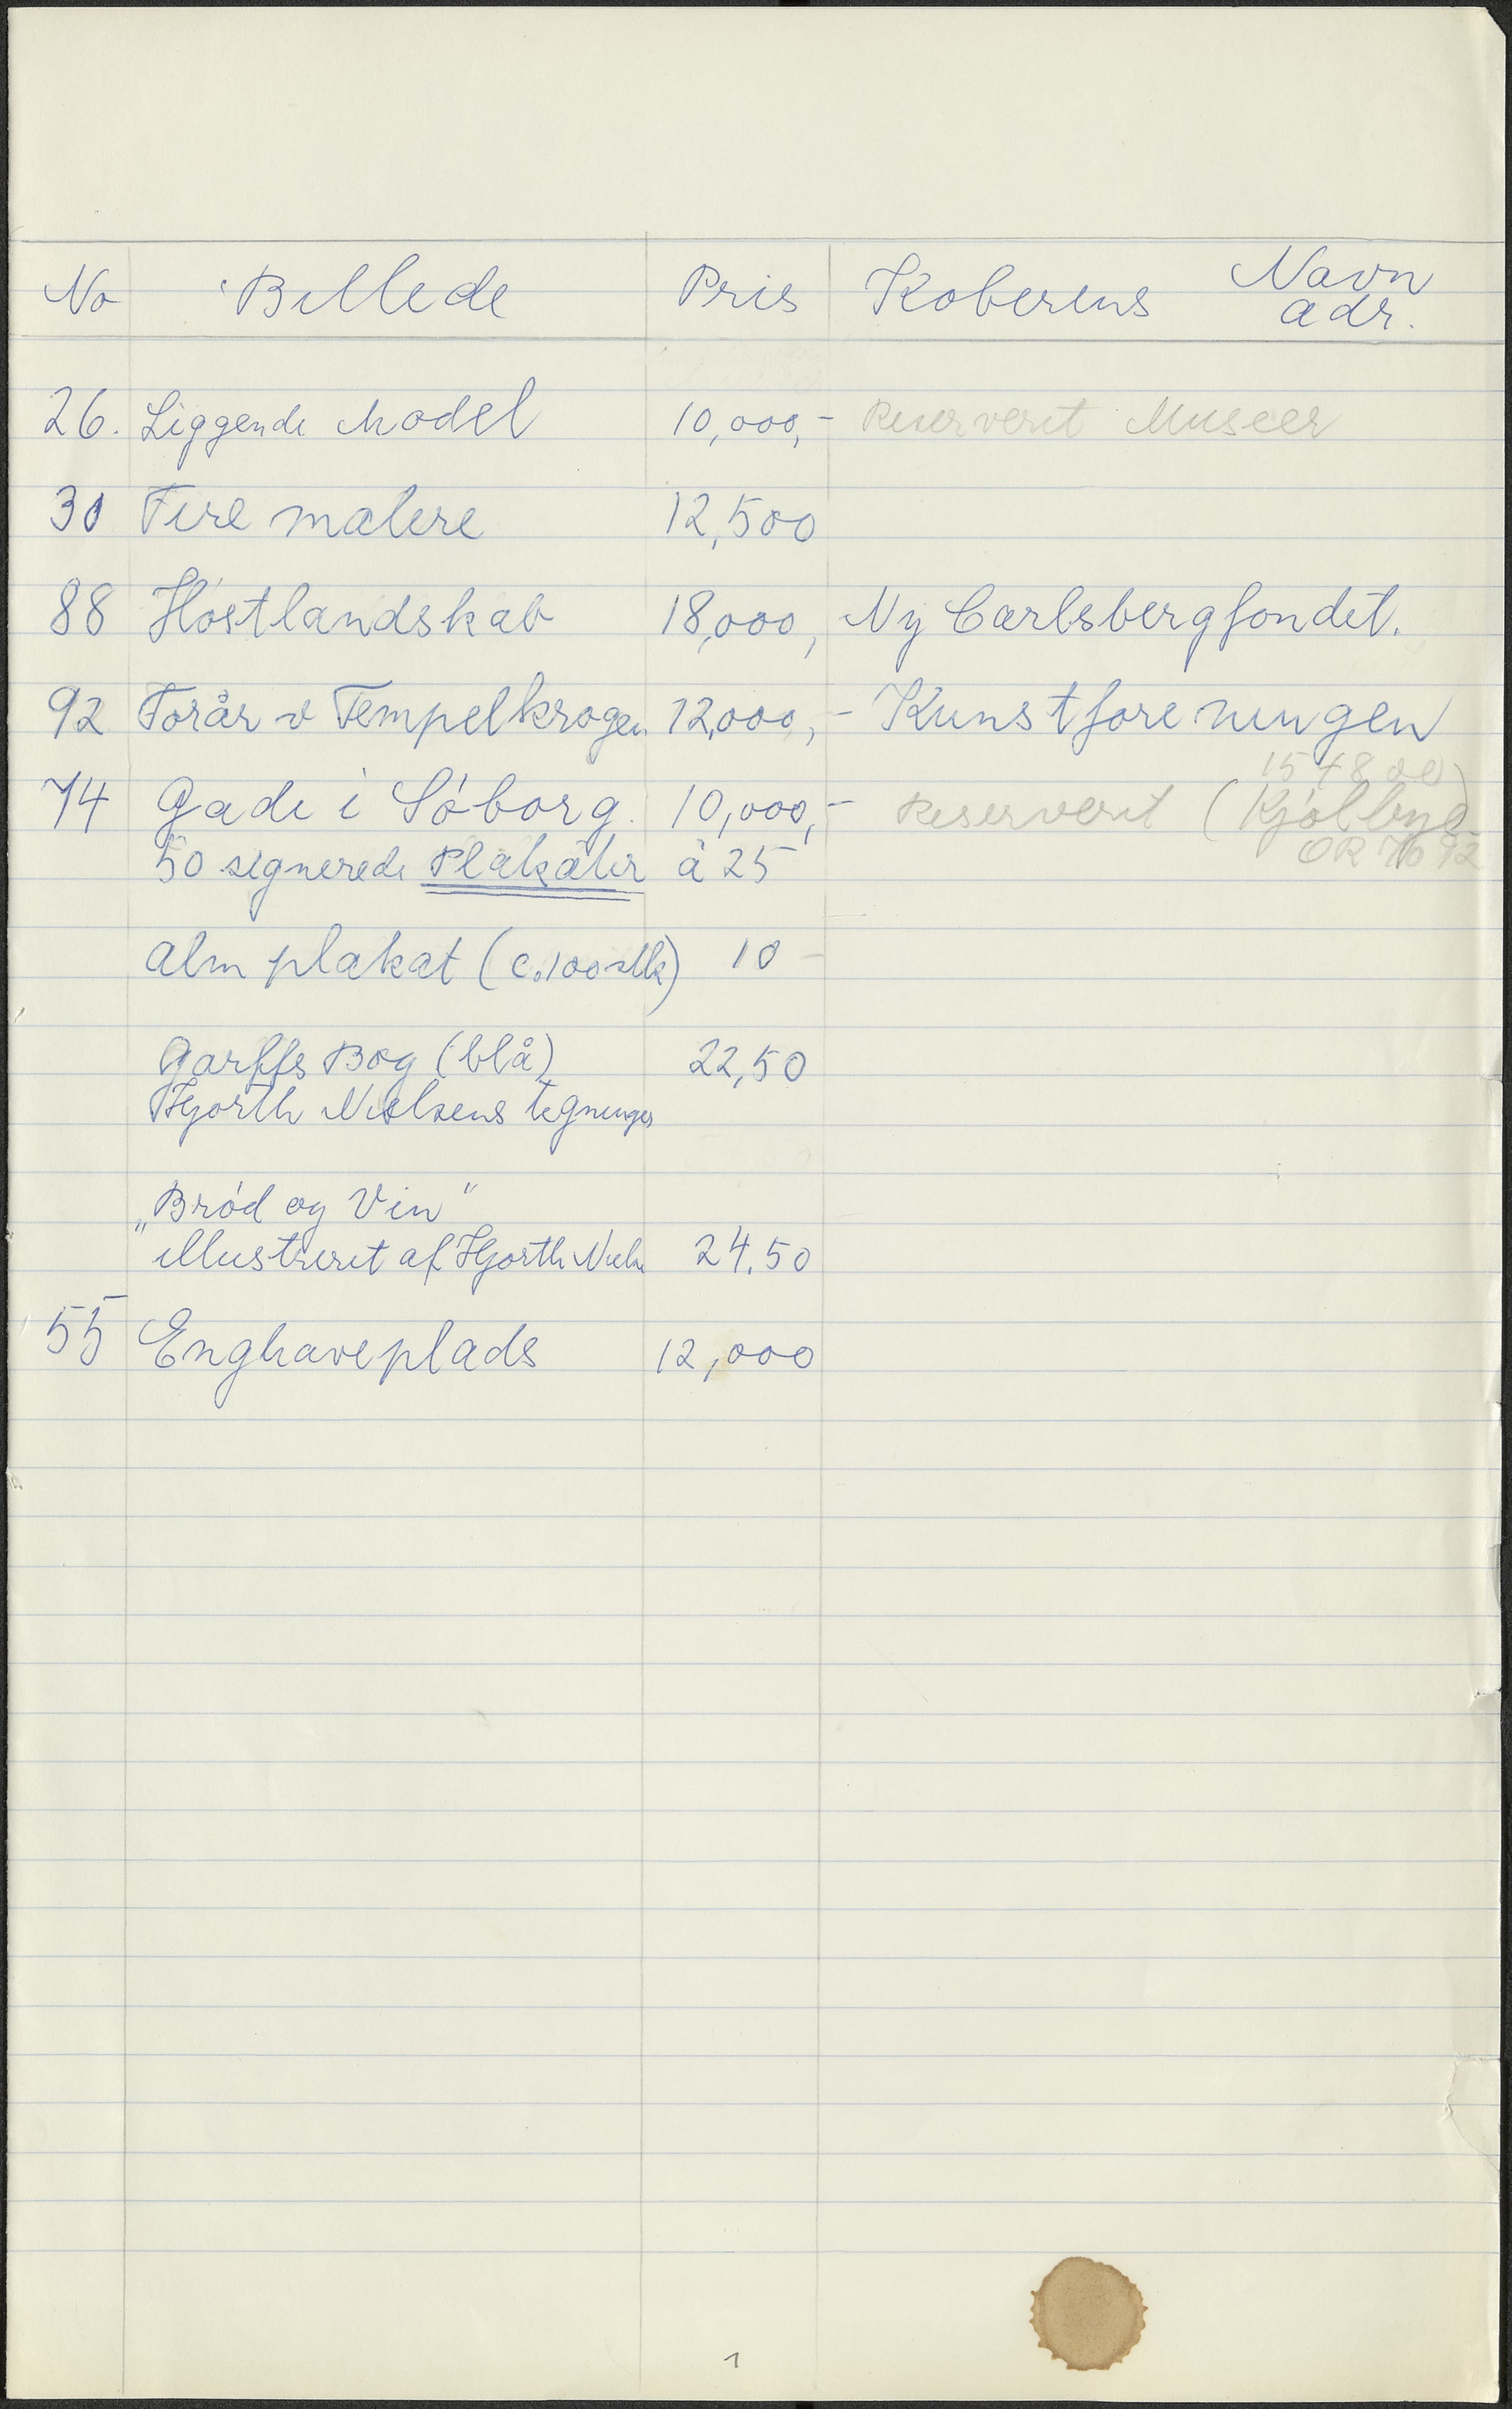 No Billede Pris Køberens Navn
adr.
26. Liggende Model 10,000,- Reserveret Museer
30 Fire malere 12,500
88 Høstlandskab 18,000, Ny Carlsbergfondet.
92 Forår v Tempelkrogen 12,000,- Kunstforeningen
154800
74 Gade i Søborg. 10,000,- Reserveret (Kjølbye)
50 signerede Plakater à 25 OR 7692
Alm plakat (c. 100 stk) 10 -
Garffs Bog (blå) 22,50
Hjorth Nielsens tegninger
"Brød og Vin"
illustreret af Hjorth Niels 24.50
55 Enghaveplads 12,000
1